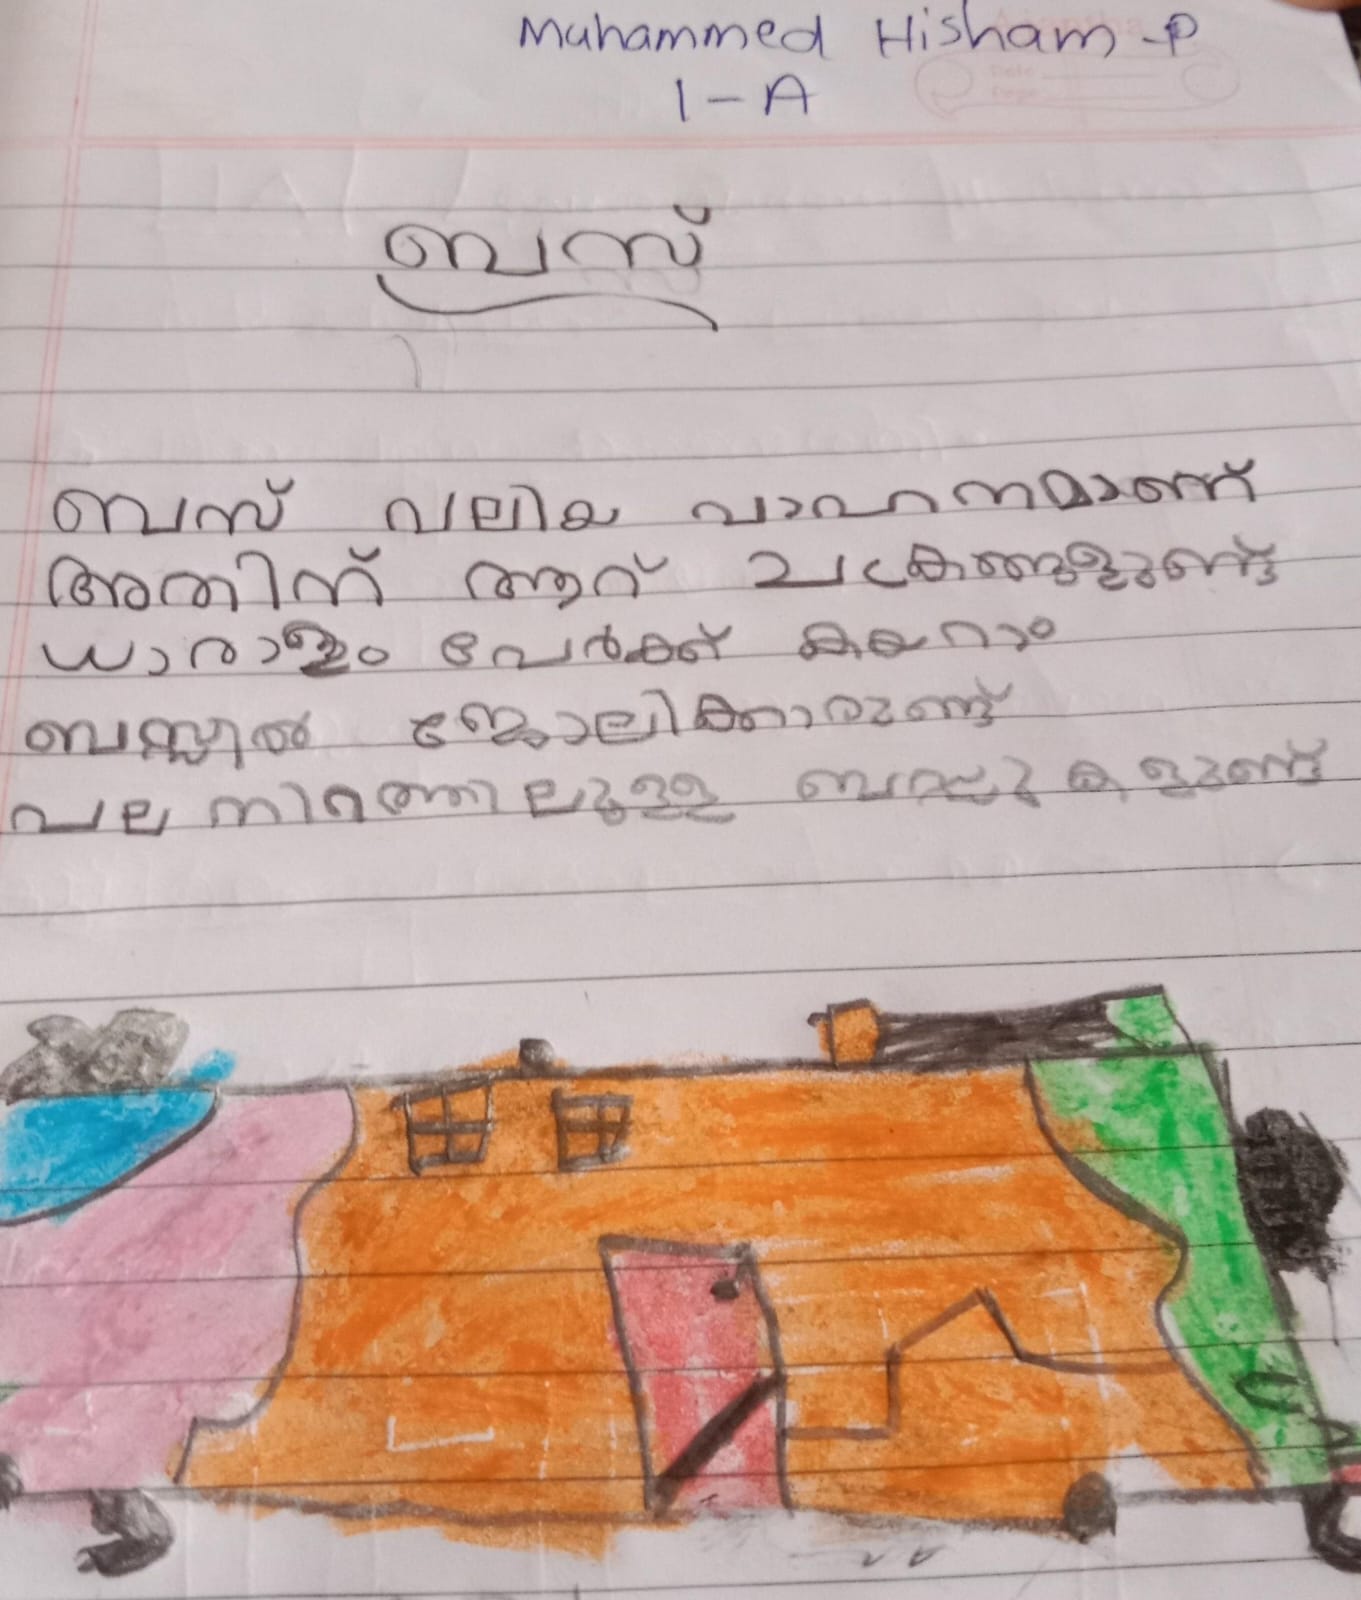 Muhammed Hisham - P
1 - A
ബസ്
ബസ് വലിയ വാഹനമാണ്
അതിന് ആറ് ചക്രങ്ങളുണ്ട്
ധാരാളം പേർക്ക് കയറാം
ബസ്സിൽ ജോലിക്കാരുണ്ട്
പല നിറത്തിലുള്ള ബസ്സുകളുണ്ട്